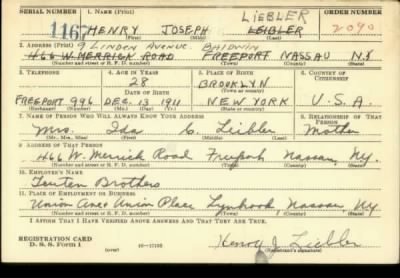 SERIAL NUMBER 1. NAME (Print) ORDER NUMBER
LIEBLER
1167 HENRY JOSEPH LIEBLER 2090
(First) (Middle) (Last)
2. ADDRESS (Print) 9 LINDEN AVENUE BALDWIN
466 W. MERRICK ROAD FREEPORT NASSAU N.Y.
(Number and street or R. F. D. number) (Town) (County) (State)
3. TELEPHONE 4. AGE IN YEARS 5. PLACE OF BIRTH 6. COUNTRY OF CITIZENSHIP
28 BROOKLYN
DATE OF BIRTH (Town or county)
FREEPORT 996 DEC. 13 1911 NEW YORK U.S.A.
(Exchange) (Number) (Mo.) (Day) (Yr.) (State or country)
7. NAME OF PERSON WHO WILL ALWAYS KNOW YOUR ADDRESS 8. RELATIONSHIP OF THAT PERSON
Mrs. Ida C. Liebler Mother
(Mr., Mrs., Miss) (First) (Middle) (Last)
9. ADDRESS OF THAT PERSON
466 W. Merrick Road Freeport Nassau N.Y.
(Number and street or R. F. D. number) (Town) (County) (State)
10. EMPLOYER'S NAME
Brothers
11. PLACE OF EMPLOYMENT OR BUSINESS
Union Ave & Union Place Lynbrook Nassau N.Y.
(Number and street or R. F. D. number) (Town) (County) (State)
I AFFIRM THAT I HAVE VERIFIED ABOVE ANSWERS AND THAT THEY ARE TRUE.
REGISTRATION CARD
D. S. S. Form 1 Henry J. Liebler
(Registrant's signature)